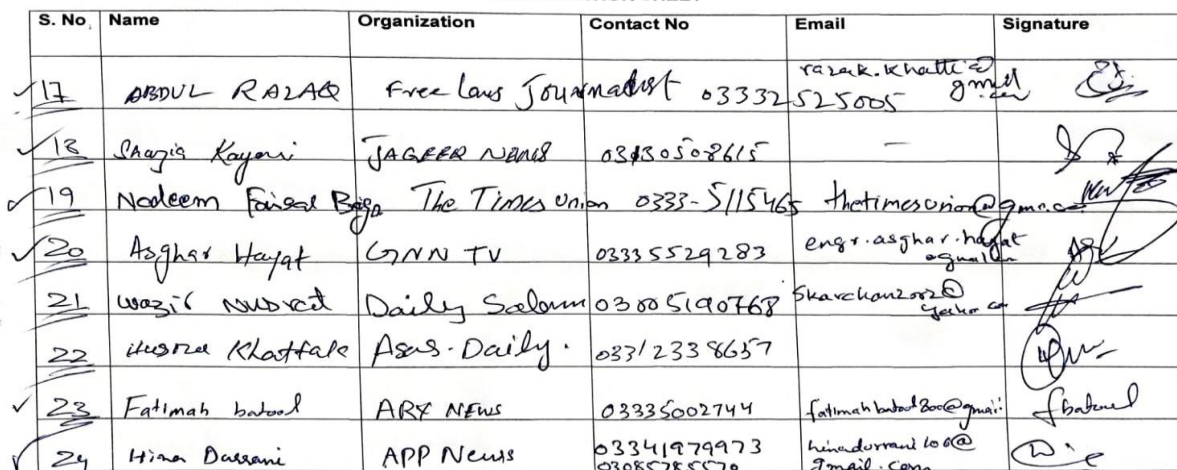 S. No. Name Organization Contact No Email Signature
17 ABDUL RAZAQ Free laus Journalist 03332525005 razak.khatti@gmail.com
18 Shazia Kayani JAGEER NEWS 03130508615 —
19 Nadeem Faisal Baga The Times Union 0333-5115465 thetimesunion@gma.co
20 Asghar Hayat GNN TV 03335529283 engr.asghar.hayat
@gmail.com
21 Wazir Nusrat Daily Salam 03005190768 Skarchan2002@
yahoo.com
22 Khattak Asas-Daily. 03312338657
23 Fatimah batool ARY NEWS 03335002744 fatimahbatool800@gmail. fbatool
24 Hina Durrani APP News 03341979973 hinadurrani100@
03085785570 gmail.com